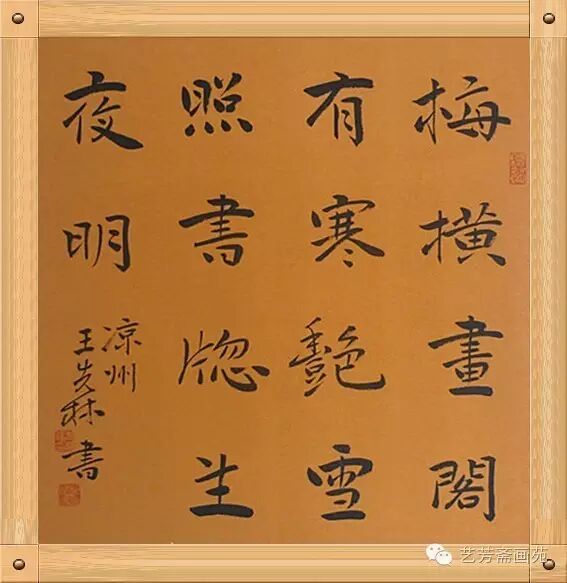 梅橫畫閣
有寒艷雪
照書牕生
夜明
凉州
王先林書
艺芳斋画苑